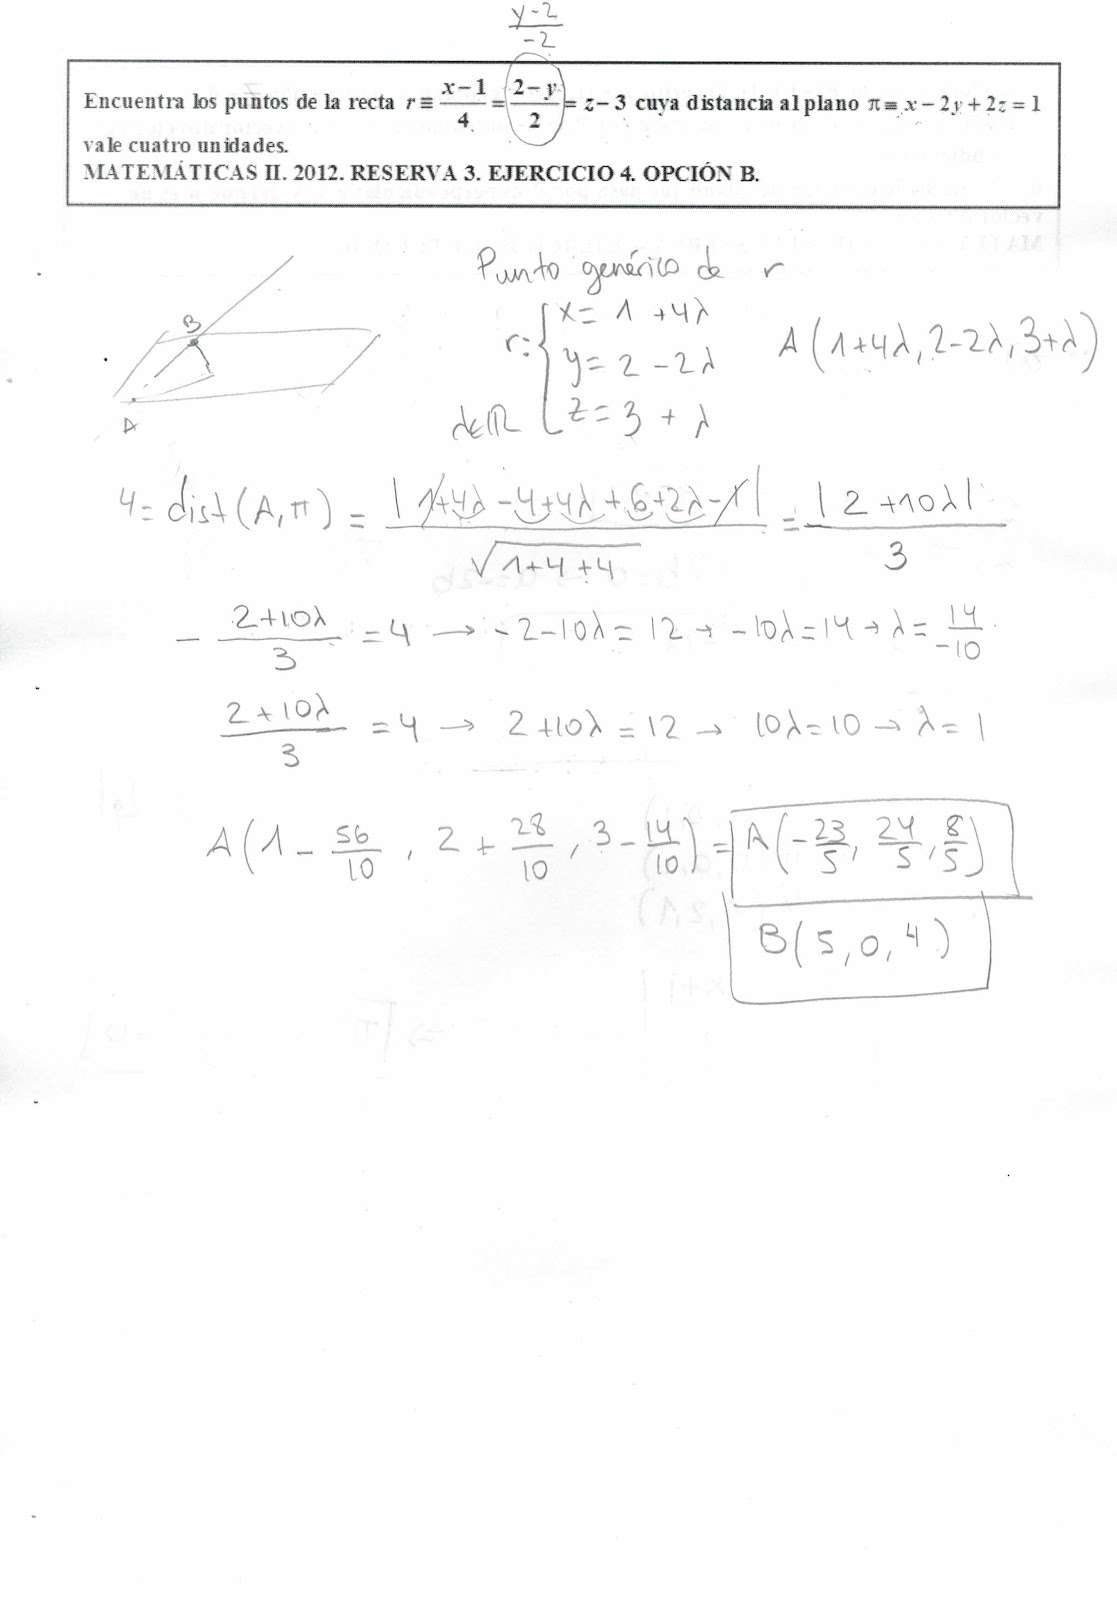 y-2/-2
Encuentra los puntos de la recta r ≡ x-1/4 = 2-y/2 = z-3 cuya distancia al plano π ≡ x-2y+2z=1
vale cuatro unidades.
MATEMÁTICAS II. 2012. RESERVA 3. EJERCICIO 4. OPCIÓN B.
Punto genérico de r
r: { x= 1 +4λ
y= 2 -2λ
z= 3 + λ
λ∈ℝ
A(1+4λ, 2-2λ, 3+λ)
B
A
4= dist(A,π) = |1+4λ-4+4λ+6+2λ-1| / √1+4+4 = |2+10λ| / 3
- 2+10λ/3 =4 → -2-10λ=12 → -10λ=14 → λ= 14/-10
2+10λ/3 =4 → 2+10λ=12 → 10λ=10 → λ=1
A(1 - 56/10, 2 + 28/10, 3 - 14/10) = A(-23/5, 24/5, 8/5)
B(5,0,4)